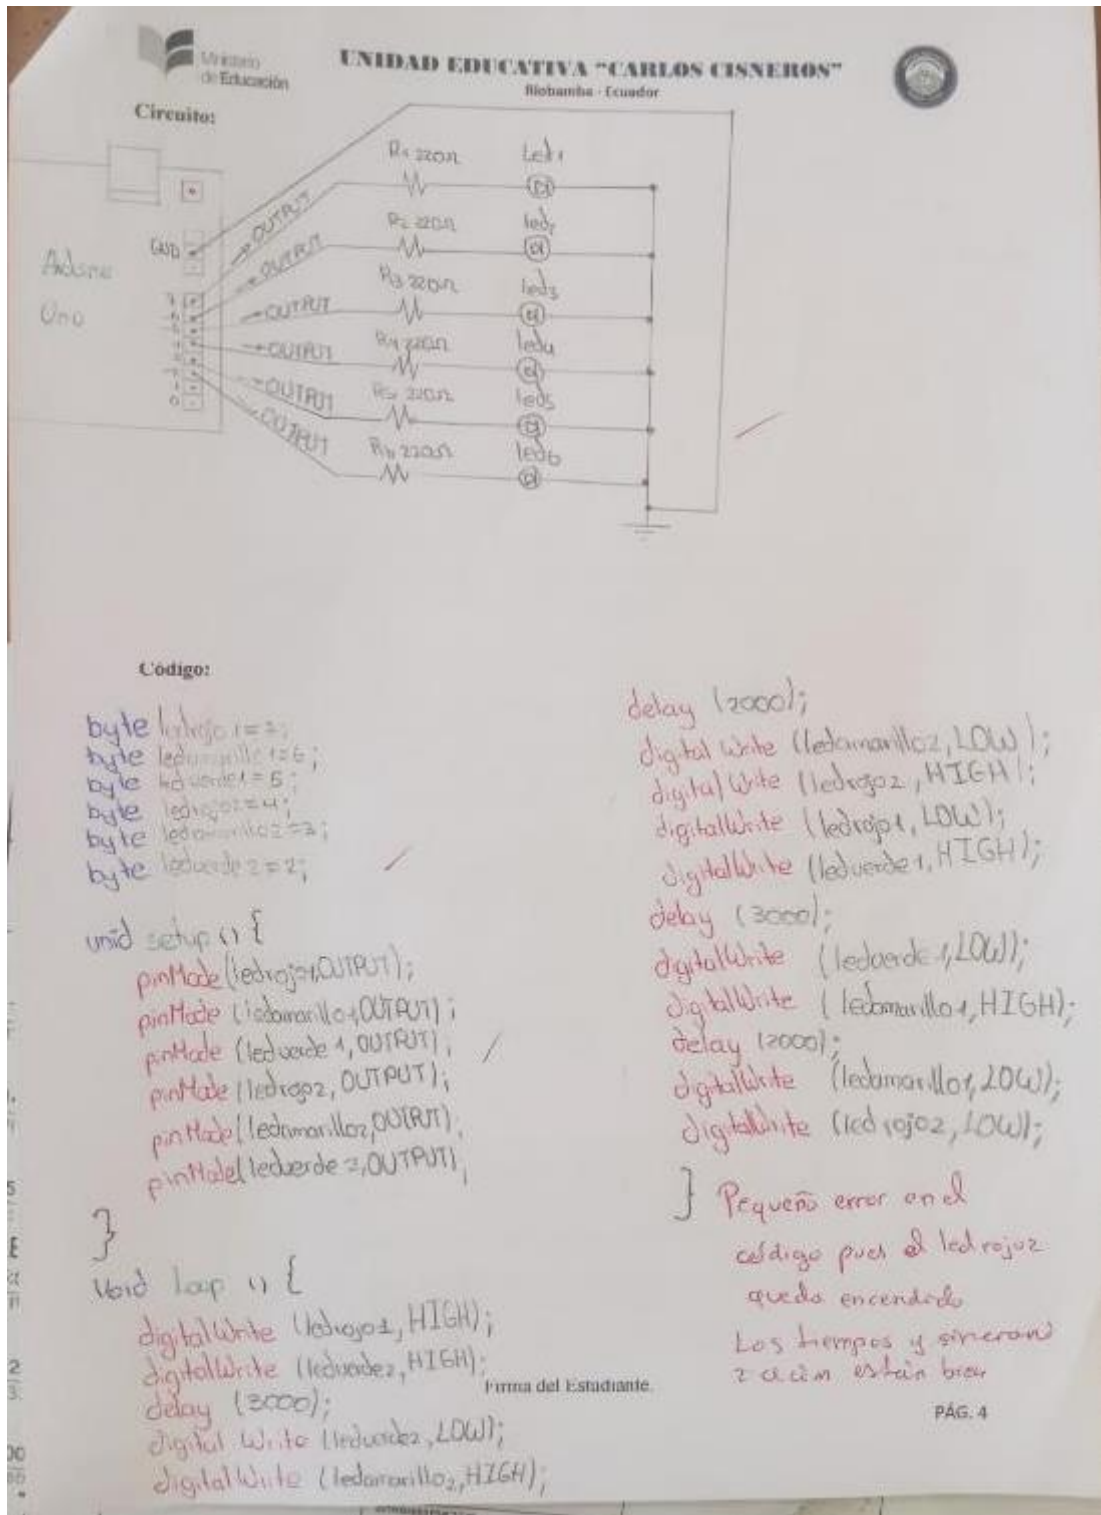 Ministerio
de Educación
UNIDAD EDUCATIVA "CARLOS CISNEROS"
Riobamba - Ecuador
Circuito:
R1 220Ω Led1
OUTPUT
R2 220Ω led2
GND
OUTPUT
R3 220Ω led3
Uno
OUTPUT
R4 220Ω led4
OUTPUT
R5 220Ω led5
OUTPUT
R6 220Ω led6
OUTPUT
0
Código:
byte ledrojo1=7;
byte ledamarillo1=6;
byte ledverde1=5;
byte ledrojo2=4;
byte ledamarillo2=3;
byte ledverde2=2;
void setup () {
pinMode(ledrojo1,OUTPUT);
pinMode (ledamarillo1,OUTPUT);
pinMode (ledverde1,OUTPUT);
pinMode (ledrojo2, OUTPUT);
pinMode(ledamarillo2,OUTPUT);
pinMode(ledverde2,OUTPUT);
}
Void loop () {
digitalWrite (ledrojo1, HIGH);
digitalWrite (ledverde2, HIGH);
delay (3000);
digital Write (ledverde2, LOW);
digitalWrite (ledamarillo2, HIGH);
delay (2000);
digital Write (ledamarillo2, LOW);
digital Write (ledrojo2, HIGH);
digitalWrite (ledrojo1, LOW);
digitalWrite (ledverde1, HIGH);
delay (3000);
digitalWrite (ledverde1, LOW);
digitalWrite (ledamarillo1, HIGH);
delay (2000);
digitalWrite (ledamarillo1, LOW);
digitalWrite (ledrojo2, LOW);
}
Pequeño error en el
código pues el ledrojo2
queda encendido
Los tiempos y sincroni
zación están bien
Firma del Estudiante.
PÁG. 4